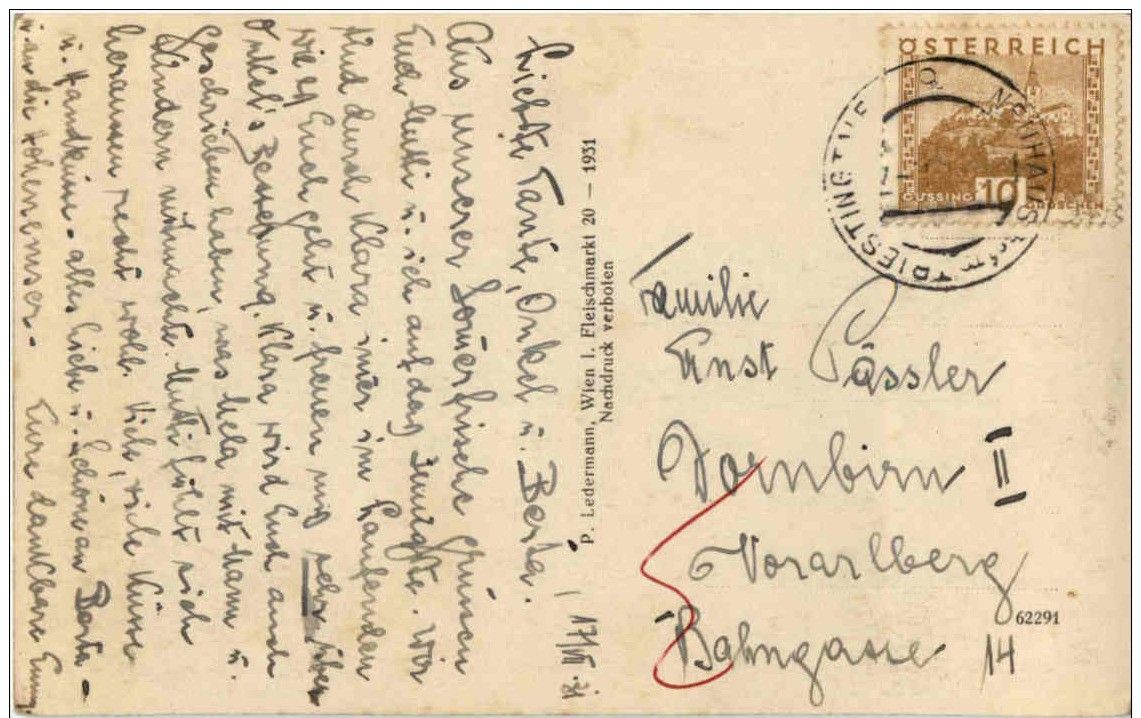 17/VII 31.
Liebste Tante, Onkel u. Berta.
Aus unserer Somerfrische grüssen
Euch Mutti u. ich auf das innigste. Wir
sind durch Klara imer im Laufenden
wie es Euch geht u. freuen uns sehr über
Onkel's Besserung. Klara wird Euch auch
geschrieben haben, was Mela mit Mann u.
Kindern machte. Mutti fühlt sich
heraussen recht wohl. Viele, viele Küsse
u. Handküsse - alles Liebe u. Schöne an Berta -
u. an die Hohenemser. - Eure dankbare Emmy
P. Ledermann, Wien I. Fleischmarkt 20 — 1931
Nachdruck verboten
ÖSTERREICH
GÜSSING 10 GROSCHEN
NEUHAUS
TRIESTINGTALE
Familie
Ernst Pässler
Dornbirn II
Vorarlberg
62291
Bahngasse 14